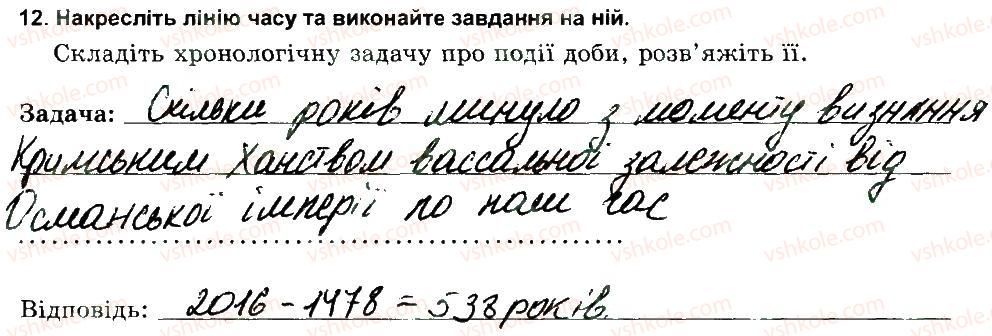 12. Накресліть лінію часу та виконайте завдання на ній.
Складіть хронологічну задачу про події доби, розв'яжіть її.
Задача: Скільки років минуло з моменту визнання
Кримським Ханством вассальної залежності від
Османської імперії по наш час
Відповідь: 2016 - 1478 = 538 років.